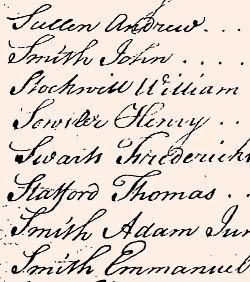 Sullen Andrew....
Smith John....
Stockwill William
Sowiler Henry..
Swarts Frederick
Statford Thomas..
Smith Adam Jun
Smith Emmanuel